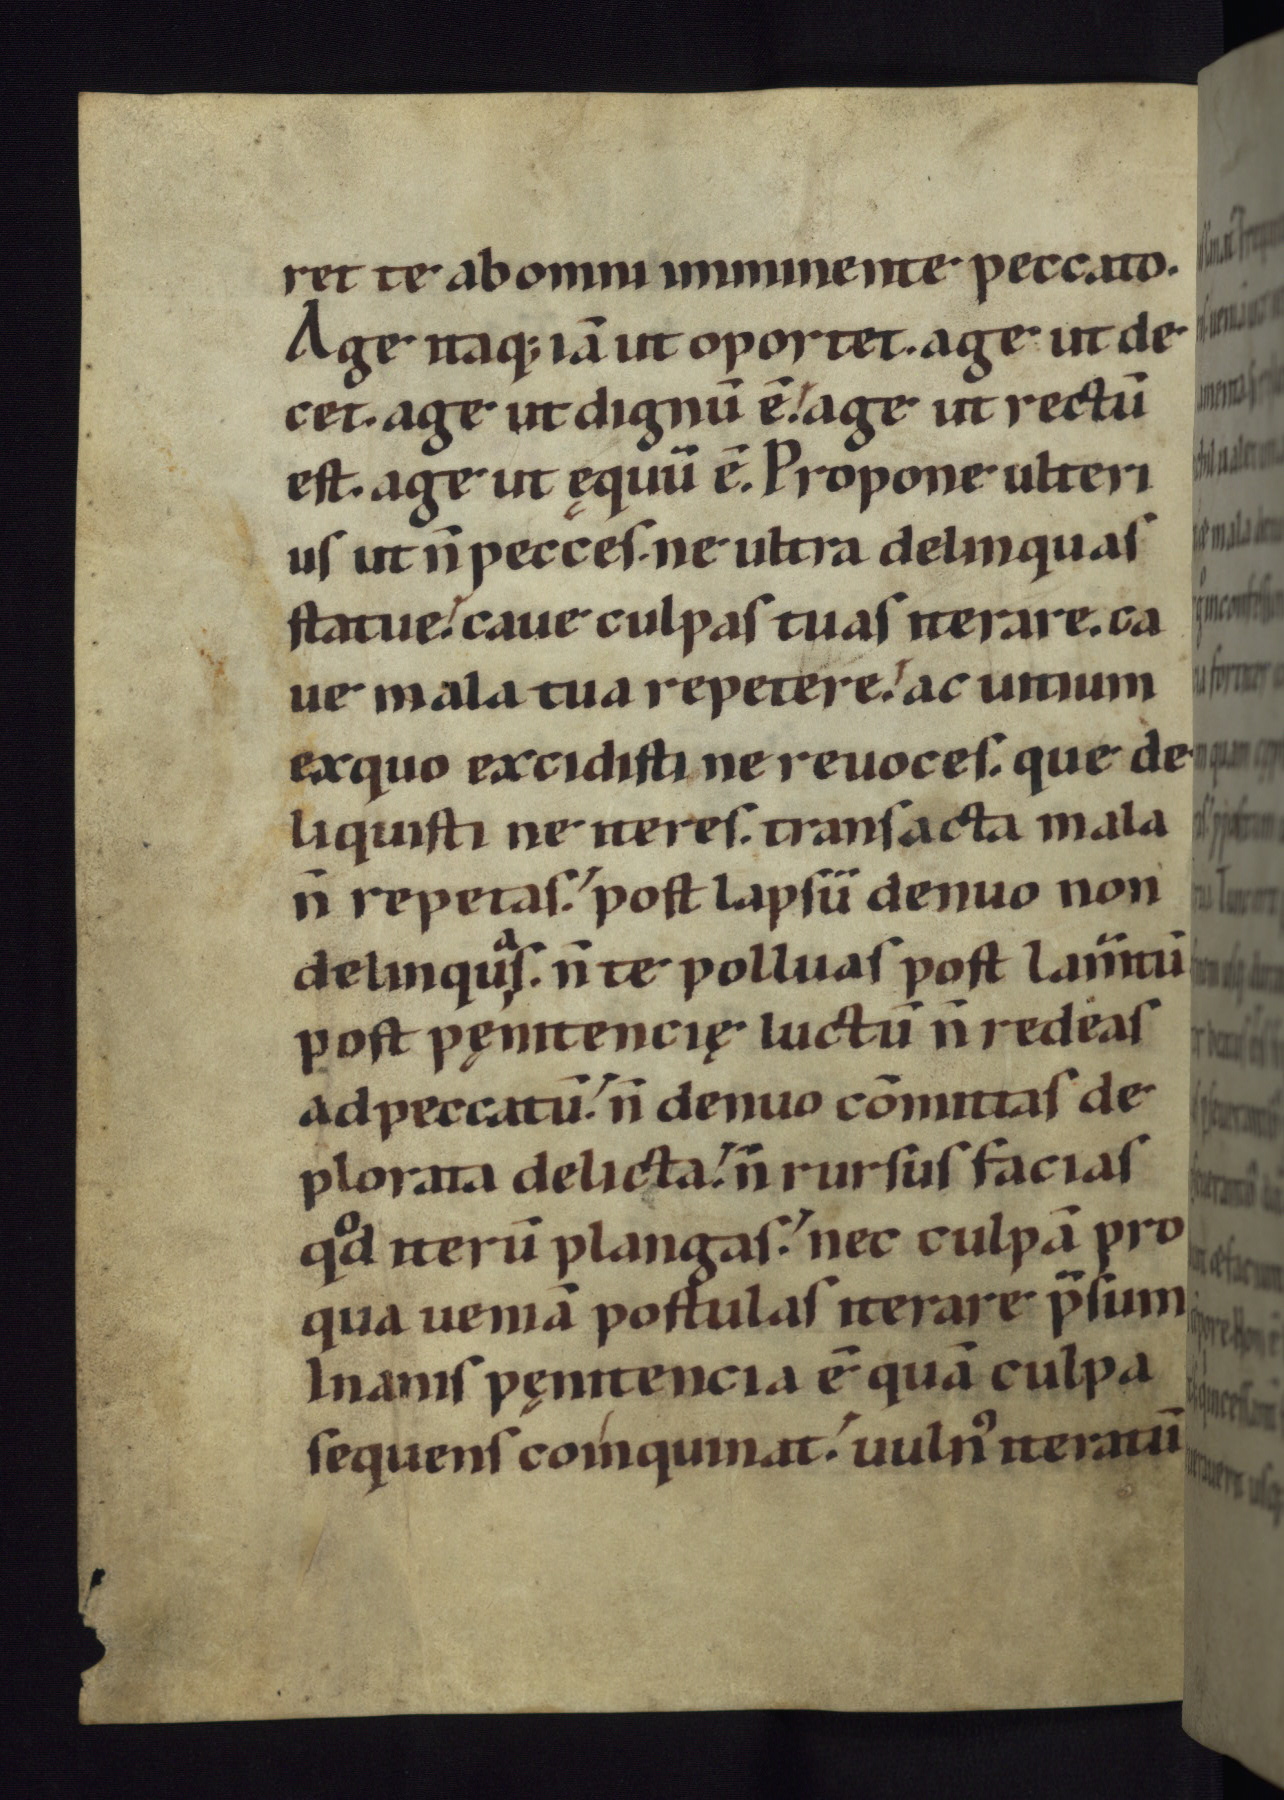 ret te ab omni imminente peccato.
Age itaq; iā ut oportet. age ut de
cet. age ut dignū ē. age ut rectū
est. age ut ęquū ē. Propone ulteri
us ut n̄ pecces. ne ultra delinquas
statue. caue culpas tuas iterare. ca
ue mala tua repetere. ac uitium
exquo excidisti ne reuoces. que de
liquisti ne iteres. transacta mala
n̄ repetas. post lapsū denuo non
delinquas. n̄ te polluas post
post pęnitencię luctū n̄ redeas
ad peccatū. n̄ denuo cōmittas de
plorata delicta. n̄ rursus facias
qod iterū plangas. nec culpā pro
qua ueniā postulas iterare p̄sum
Inanis pęnitencia ē quā culpa
sequens coinquinat. uuln⁹ iteratū